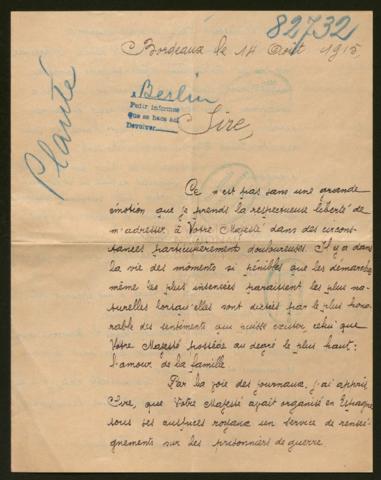 82732
Bordeaux le 14 Août 1915,
Planté
A Berlin
Pedir informes
que se hace así
Devolver
Sire,
Ce n'est pas sans une grande
émotion que je prends la respectueuse liberté de
m'adresser à Votre Majesté dans des circons-
tances particulièrement douloureuses. Il y a dans
la vie des moments si pénibles que les démarches
même les plus insensées paraissent les plus na-
turelles lorsqu'elles sont dictées par le plus hono-
rable des sentiments qui puisse exister, celui que
Votre Majesté possède au degré le plus haut:
l'amour de la famille
Par la voie des journaux, j'ai appris
Sire, que Votre Majesté avait organisé en Espagne
sous ses auspices un service de rensei-
gnements sur les prisonniers de guerre.